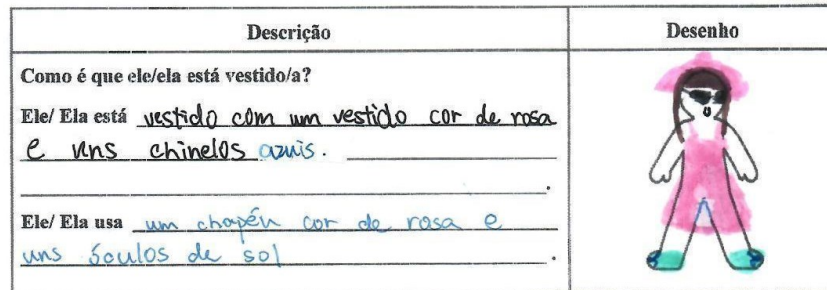 Descrição
Desenho
Como é que ele/ela está vestido/a?
Ele/ Ela está vestido com um vestido cor de rosa
e uns chinelos azuis.
.
Ele/ Ela usa um chapéu cor de rosa e
uns óculos de sol .